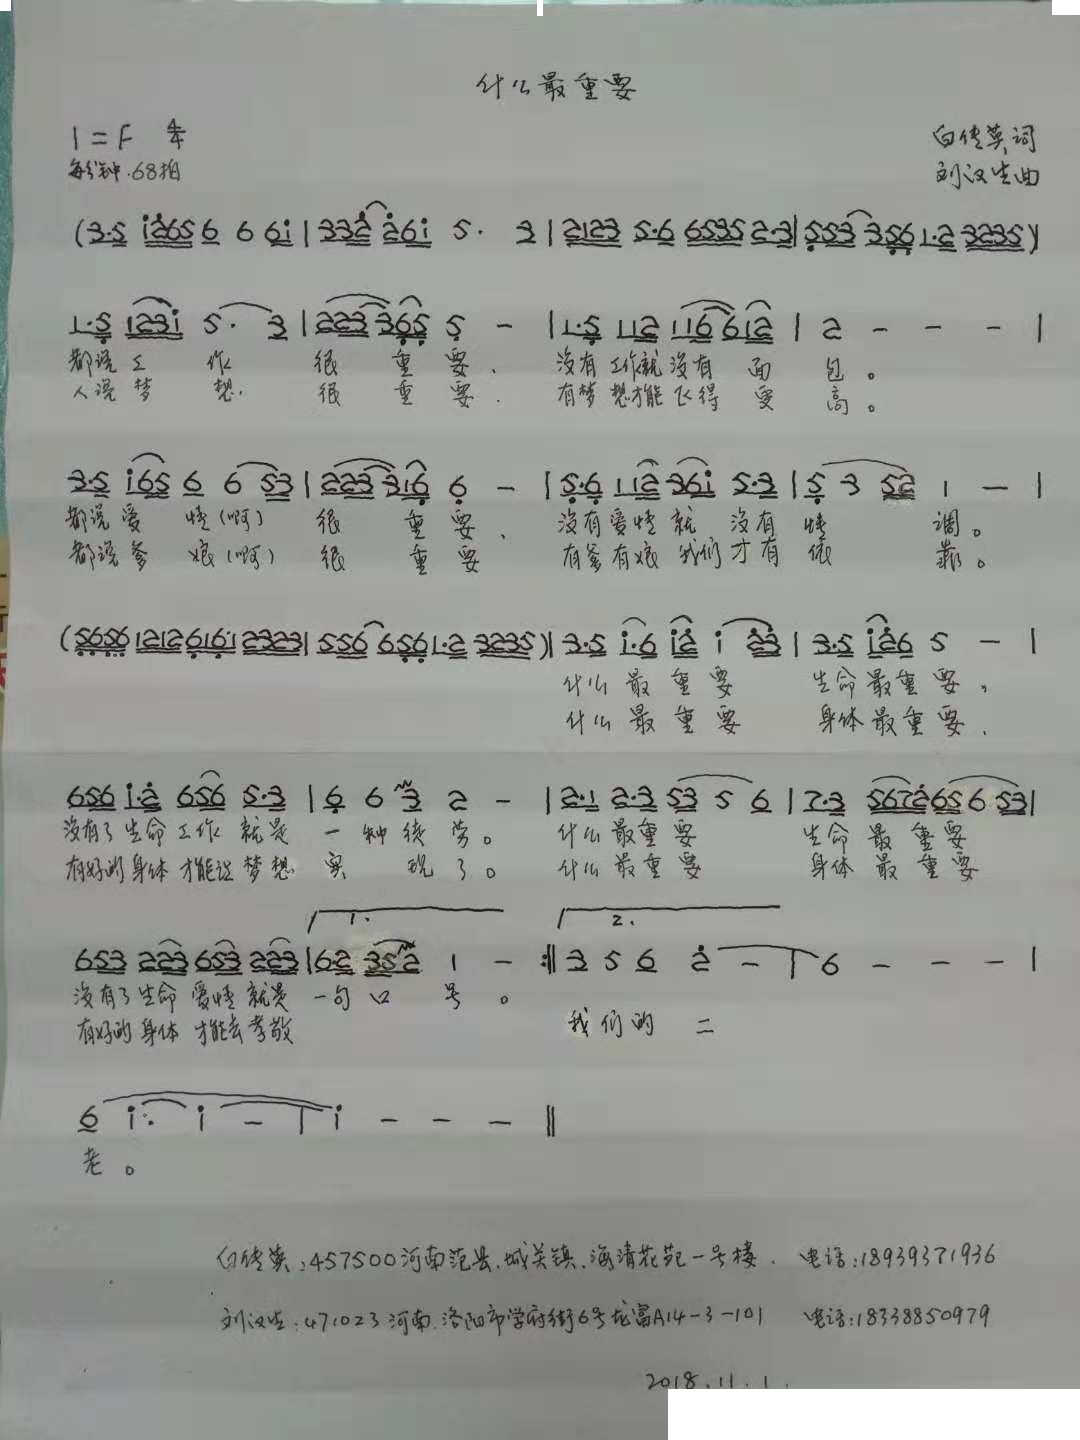 什么最重要
1=F 4/4
白传英词
每分钟.68拍
刘汉生曲
(3·5 i2656 6 6i | 332 26i 5· 3 | 2123 5·6 6535 2·3 | 553 356 1·2 3235)
1·5 123i 5· 3 | 223 365 5 - | 1·5 112 116 612 | 2 - - - |
都说工 作 很 重 要、 没有工作就没有 面 包。
人说梦 想. 很 重 要. 有梦想才能飞得 更 高。
3·5 i65 6 6 53 | 223 316 6 - | 5·6 112 36i 5·3 | 5 3 52 1 - |
都说爱 情(啊) 很 重 要、 没有爱情就 没有 情 调。
都说爹 娘(啊) 很 重 要 有爹有娘我们才有 依 靠。
(5656 1212 6161 2323 | 556 656 1·2 3235) | 3·5 i·6 i2 i 23 | 3·5 i26 5 - |
什么最重要 生命最重要,
什么最重要 身体最重要.
656 i·2 656 5·3 | 6 6 3 2 - | 2·1 2·3 53 5 6 | 7·3 5672 656 53 |
没有了生命工作 就是 一 种徒 劳。 什么最重要 生命 最重要
有好的身体才能让梦想 实 现了。 什么最重要 身体 最重要
1. 2.
653 223 653 223 | 6·2 352 1 - :‖ 3 5 6 2 - | 6 - - - |
没有了生命 爱情 就是 一句口 号。
有好的身体 才能去孝敬 我们的 二
6 i· i - | i - - - ‖
老。
白传英:457500河南范县.城关镇.海清花苑一号楼. 电话:18939371936
刘汉生:471023河南.洛阳市学府街6号龙富A14-3-101 电话:18338850979
2018.11.1.